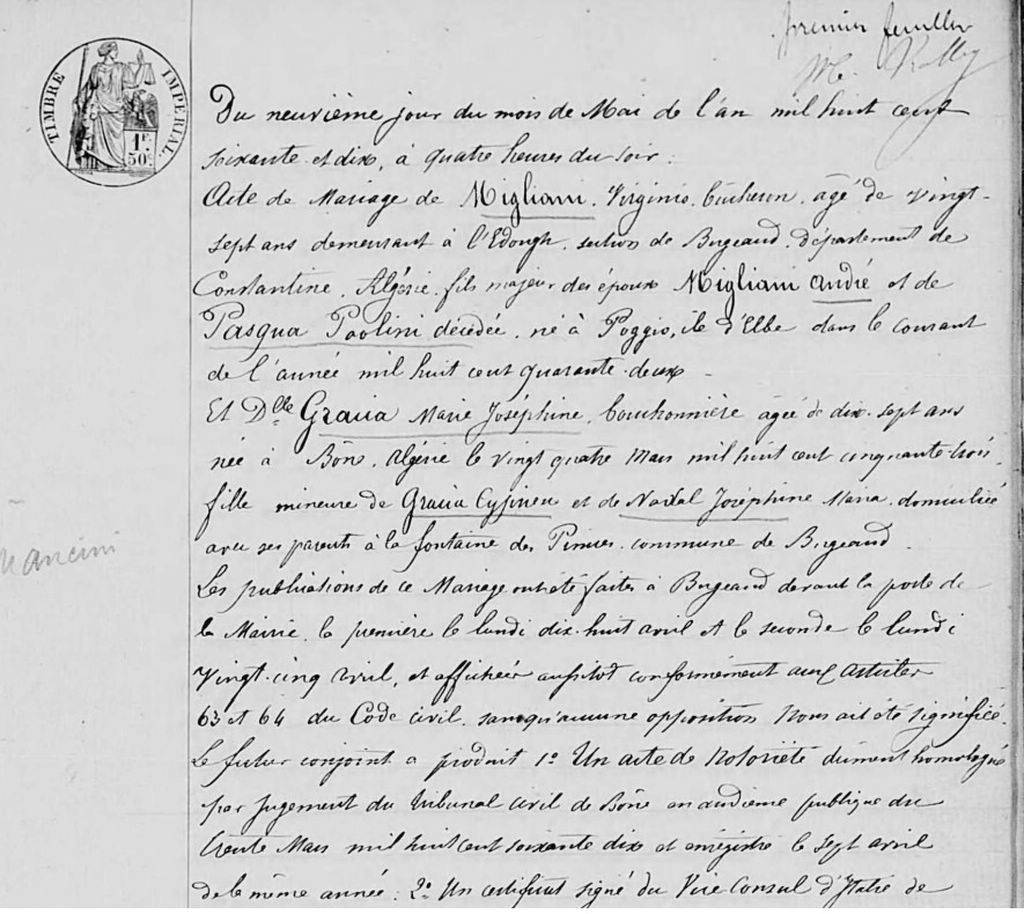 premier feuillet
TIMBRE IMPERIAL.
1F.
50c
Du neuvième jour du mois de Mai de l'an mil huit cent
soixante et dix, à quatre heures du soir :
Acte de Mariage de Migliani, Virginio, bûcheron, âgé de vingt-
sept ans demeurant à l'Edough, section de Bugeaud, département de
Constantine, Algérie, fils majeur des époux Migliani André et de
Pasqua Paolini décédée, né à Poggio, île d'Elbe dans le courant
de l'année mil huit cent quarante-deux
Et Dlle Gracia Marie Joséphine, bouchonnière âgée de dix-sept ans
née à Bône, Algérie le vingt quatre Mars mil huit cent cinquante-trois,
fille mineure de Gracia et de Joséphine Maria, domiciliée
avec ses parents à la fontaine des Princes, commune de Bugeaud.
Les publications de ce Mariage ont été faites à Bugeaud devant la porte de
la Mairie, la première le lundi dix-huit avril et la seconde le lundi
vingt-cinq avril, et affichées aussitôt conformément aux articles
63 et 64 du Code civil, sans qu'aucune opposition Nous ait été signifiée.
Le futur conjoint a produit 1° Un acte de Notoriété dûment homologué
par jugement du tribunal civil de Bône en audience publique du
trente Mars mil huit cent soixante dix et enregistré le sept avril
de la même année : 2° Un certificat signé du Vice Consul d'Italie de
Mancini